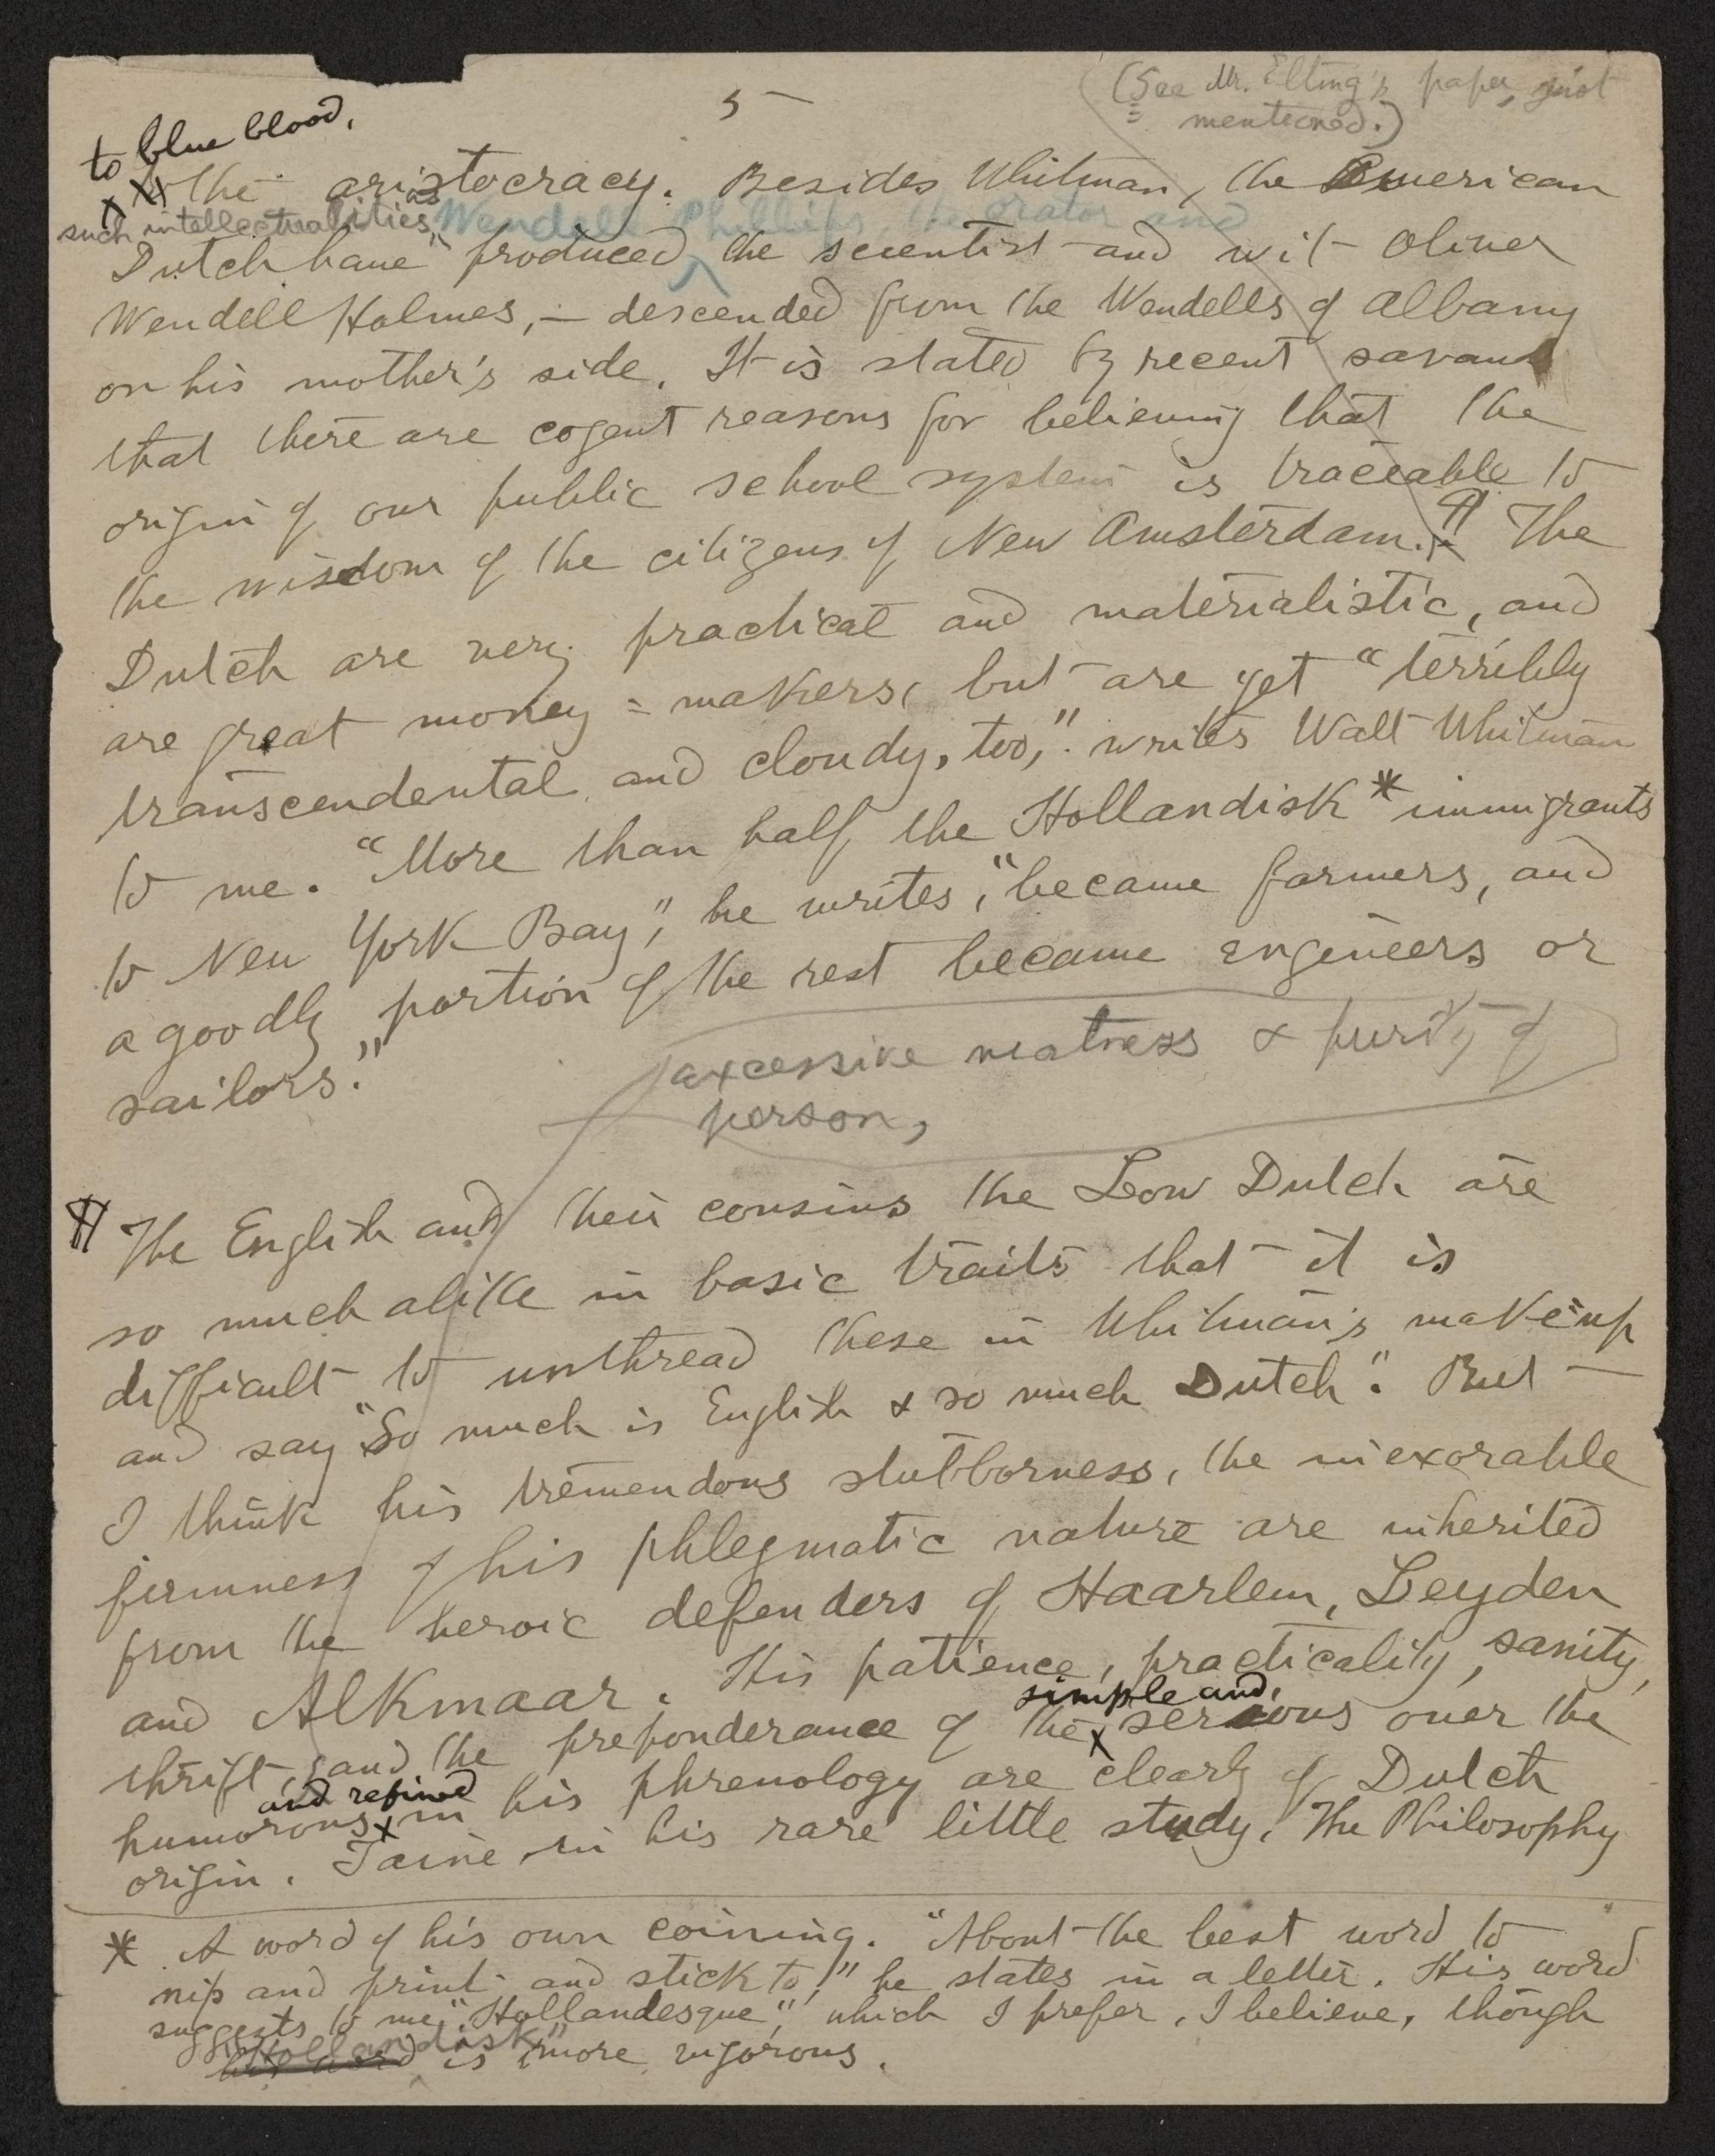 5
(See Mr. Elting's paper, just
mentioned.)
to blue blood,
the aristocracy. Besides Whitman, the American
such intellectualities as Wendell Phillips, the orator and
Dutch have produced the scientist and wit Oliver
Wendell Holmes, — descended from the Wendells of Albany
on his mother's side. It is stated by recent savants
that there are cogent reasons for believing that the
origin of our public school system is traceable to
the wisdom of the citizens of New Amsterdam. ¶ The
Dutch are very practical and materialistic, and
are great money = makers, but are yet "terribly
transcendental and cloudy, too," writes Walt Whitman
to me. "More than half the Hollandisk * immigrants
to New York Bay," he writes, "became farmers, and
a goodly portion of the rest became engineers or
sailors."
excessive neatness & purity of
person,
¶ The English and their cousins the Low Dutch are
so much alike in basic traits that it is
difficult to unthread these in Whitman's make=up
and say "So much is English & so much Dutch". But
I think his tremendous stubborness, the inexorable
firmness of his phlegmatic nature are inherited
from the heroic defenders of Haarlem, Leyden
and Alkmaar. His patience, practicality, sanity,
simple and
thrift, and the preponderance of the x serious over the
and refined
humorous x in his phrenology are clearly of Dutch
origin. Taine in his rare little study, The Philosophy
* A word of his own coining. "About the best word to
nip and print and stick to," he states in a letter. His word
suggests to me "Hollandesque," which I prefer, I believe, though
"Hollandisk"
his word is more vigorous.